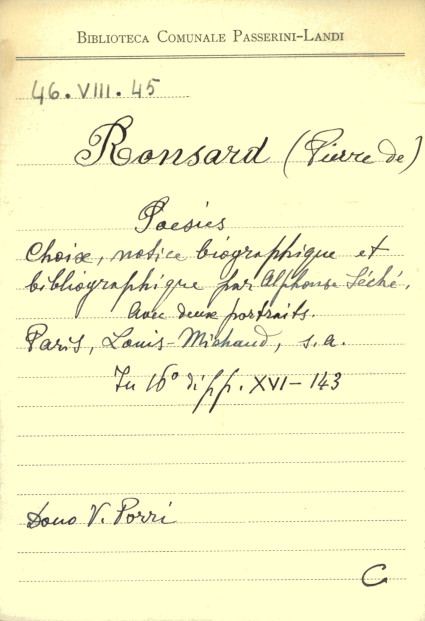 BIBLIOTECA COMUNALE PASSERINI-LANDI
46.VIII.45
Ronsard (Pierre de)
Poesies
Choix, notice biographique et
bibliographique par Alphonse Séché.
Avec deux portraits.
Paris, Louis-Michaud, s.a.
In 16° di pp. XVI-143
Dono V. Porri
C